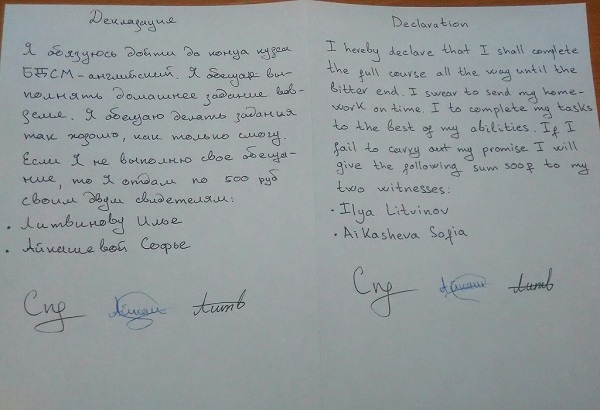 Декларация
Я обязуюсь дойти до конца курса
БЕСМ-английский. Я обещаю вы-
полнять домашнее задание вов-
ремя. Я обещаю делать задания
так хорошо, как только смогу.
Если Я не выполню свое обеща-
ние, то Я отдам по 500 руб
своим двум свидетелям:
• Литвинову Илье
• Айкашевой Софье
Declaration
I hereby declare that I shall complete
the full course all the way until the
bitter end. I swear to send my home-
work on time. I to complete my tasks
to the best of my abilities. If I
fail to carry out my promise I will
give the following sum 500₽ to my
two witnesses:
• Ilya Litvinov
• Aikasheva Sofia